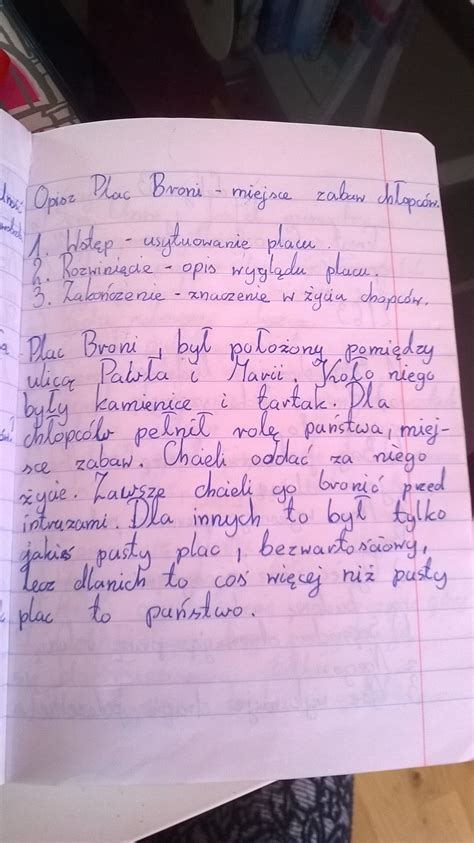 Opisz Plac Broni - miejsce zabaw chłopców.
1. Wstęp - usytuowanie placu.
2. Rozwinięcie - opis wyglądu placu.
3. Zakończenie - znaczenie w życiu chopców.
Plac Broni, był położony pomiędzy
ulicą Pawła i Marii. Koło niego
były kamienice i tartak. Dla
chłopców pełnił rolę państwa, miej-
sce zabaw. Chcieli oddać za niego
życie. Zawsze chcieli go bronić przed
intruzami. Dla innych to był tylko
jakiś pusty plac, bezwartościowy,
lecz dlanich to coś więcej niż pusty
plac to państwo.